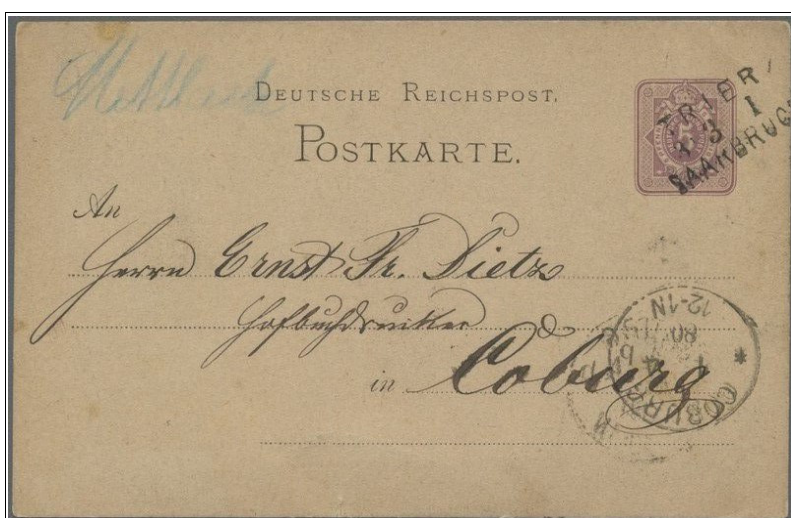 DEUTSCHE REICHSPOST.
POSTKARTE.
TRIER
3 1
SAARBRÜC
An
Herrn Ernst Fr. Dietz
Hofbuchdrucker
in Coburg
12-1N
80
COBURG